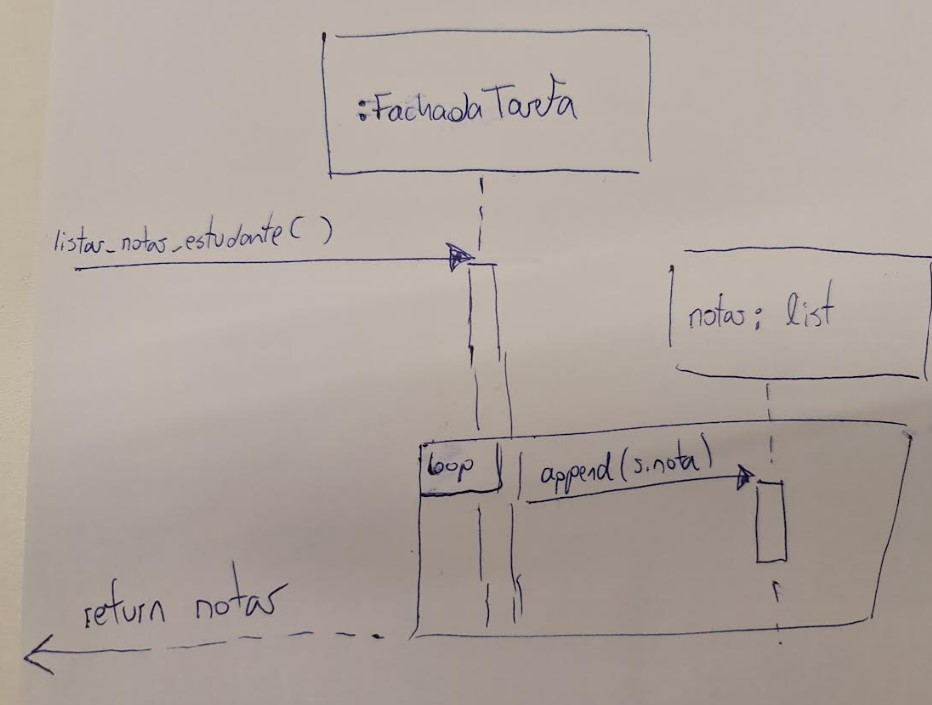 :Fachada Tarefa
listar_notas_estudante( )
notas: list
loop
append(s.nota)
return notas